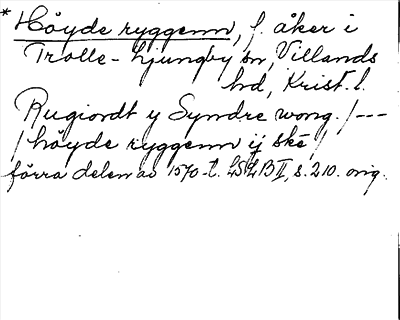 * Höyde ryggenn, f. åker i
Trolle-Ljungby sn, Villands
hd, Krist. l.
Rugiordt y Syndre wong. / ---
/ höyde ryggenn ij ske /
förra delen av 1570-t. LSLB II, s. 210. orig.